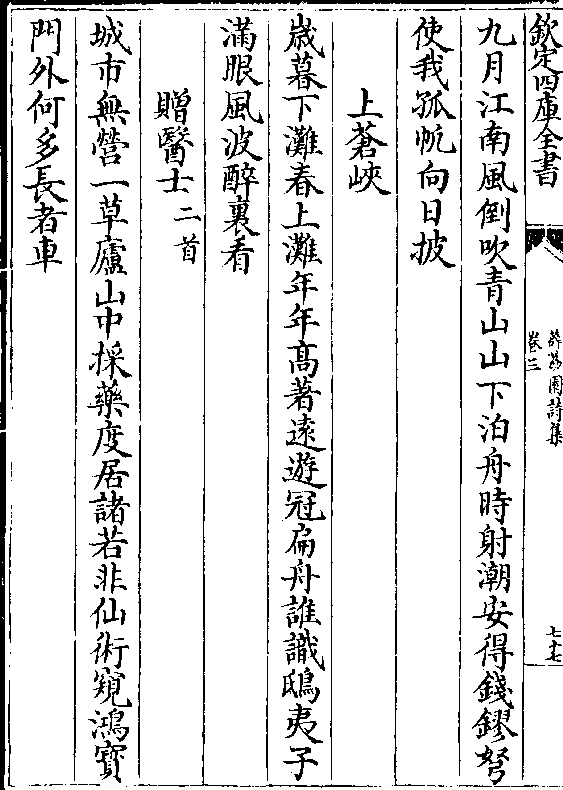 欽定四庫全書
薜荔園詩集
卷三
七十七
九月江南風倒吹青山山下泊舟時射潮安得錢鏐弩
使我孤帆向日披
上蒼峽
歳暮下灘春上灘年年髙著遠遊冠扁舟誰識鴟夷子
滿眼風波醉裏看
贈醫士二首
城市無營一草廬山中採藥度居諸若非仙術窺鴻寶
門外何多長者車